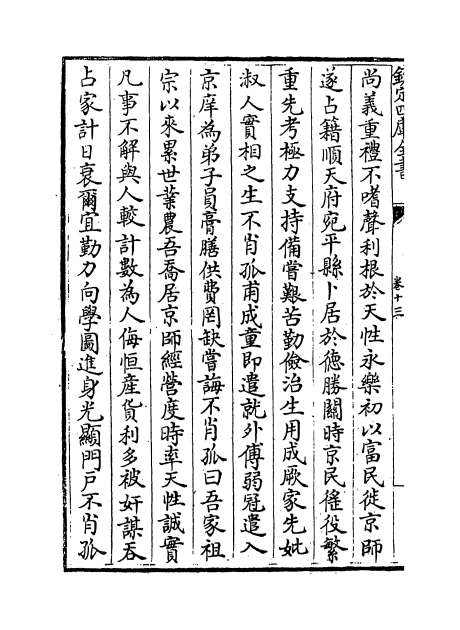 欽定四庫全書
卷十三
尚義重禮不嗜聲利根於天性永樂初以富民徙京師
遂占籍順天府宛平縣卜居於德勝關時京民徭役繁
重先考極力支持備嘗艱苦勤儉治生用成厥家先妣
淑人實相之生不肖孤甫成童即遣就外傅弱冠遣入
京庠為弟子員膏膳供費罔缺嘗誨不肖孤曰吾家祖
宗以來累世業農吾喬居京師經營度時率天性誠實
凡事不解與人較計數為人侮恒産貨利多被奸謀吞
占家計日衰爾宜勤力向學圖進身光顯門戸不肖孤